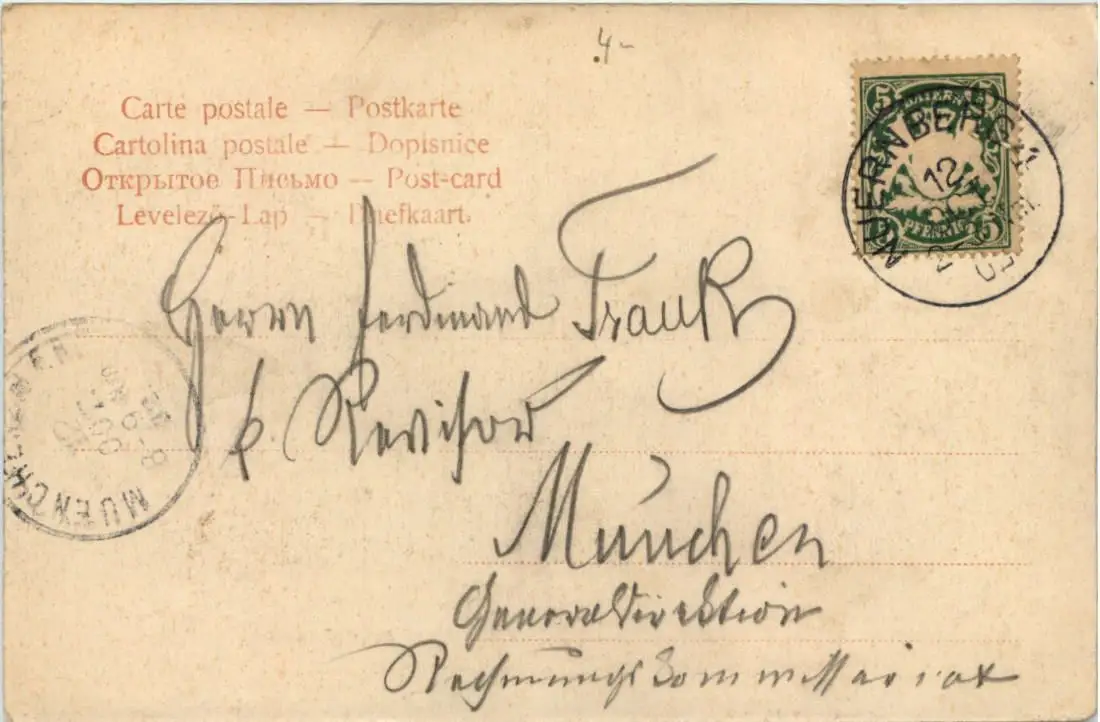 4-
Carte postale — Postkarte
Cartolina postale — Dopisnice
Открытое Письмо — Post-card
Levelező-Lap — Briefkaart.
5 BAYERN 5
5 PFENNIG 5
NUERNBERG
12
Herrn Ferdinand Frank
k. Revisor
München
Generaldirektion
Rechnungskommissariat
MUENCHEN
8-9